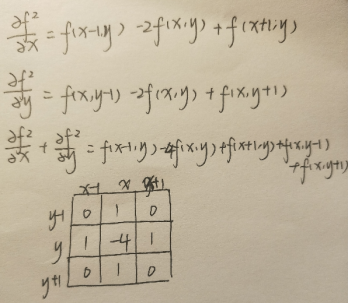 ∂f²/∂²x = f(x-1,y) -2f(x,y) + f(x+1,y)
∂f²/∂²y = f(x,y-1) -2f(x,y) + f(x,y+1)
∂f²/∂²x + ∂f²/∂²y = f(x-1,y) -4f(x,y) + f(x+1,y) + f(x,y-1)
+ f(x,y+1)
x-1 x x+1
y-1 0 1 0
y 1 -4 1
y+1 0 1 0